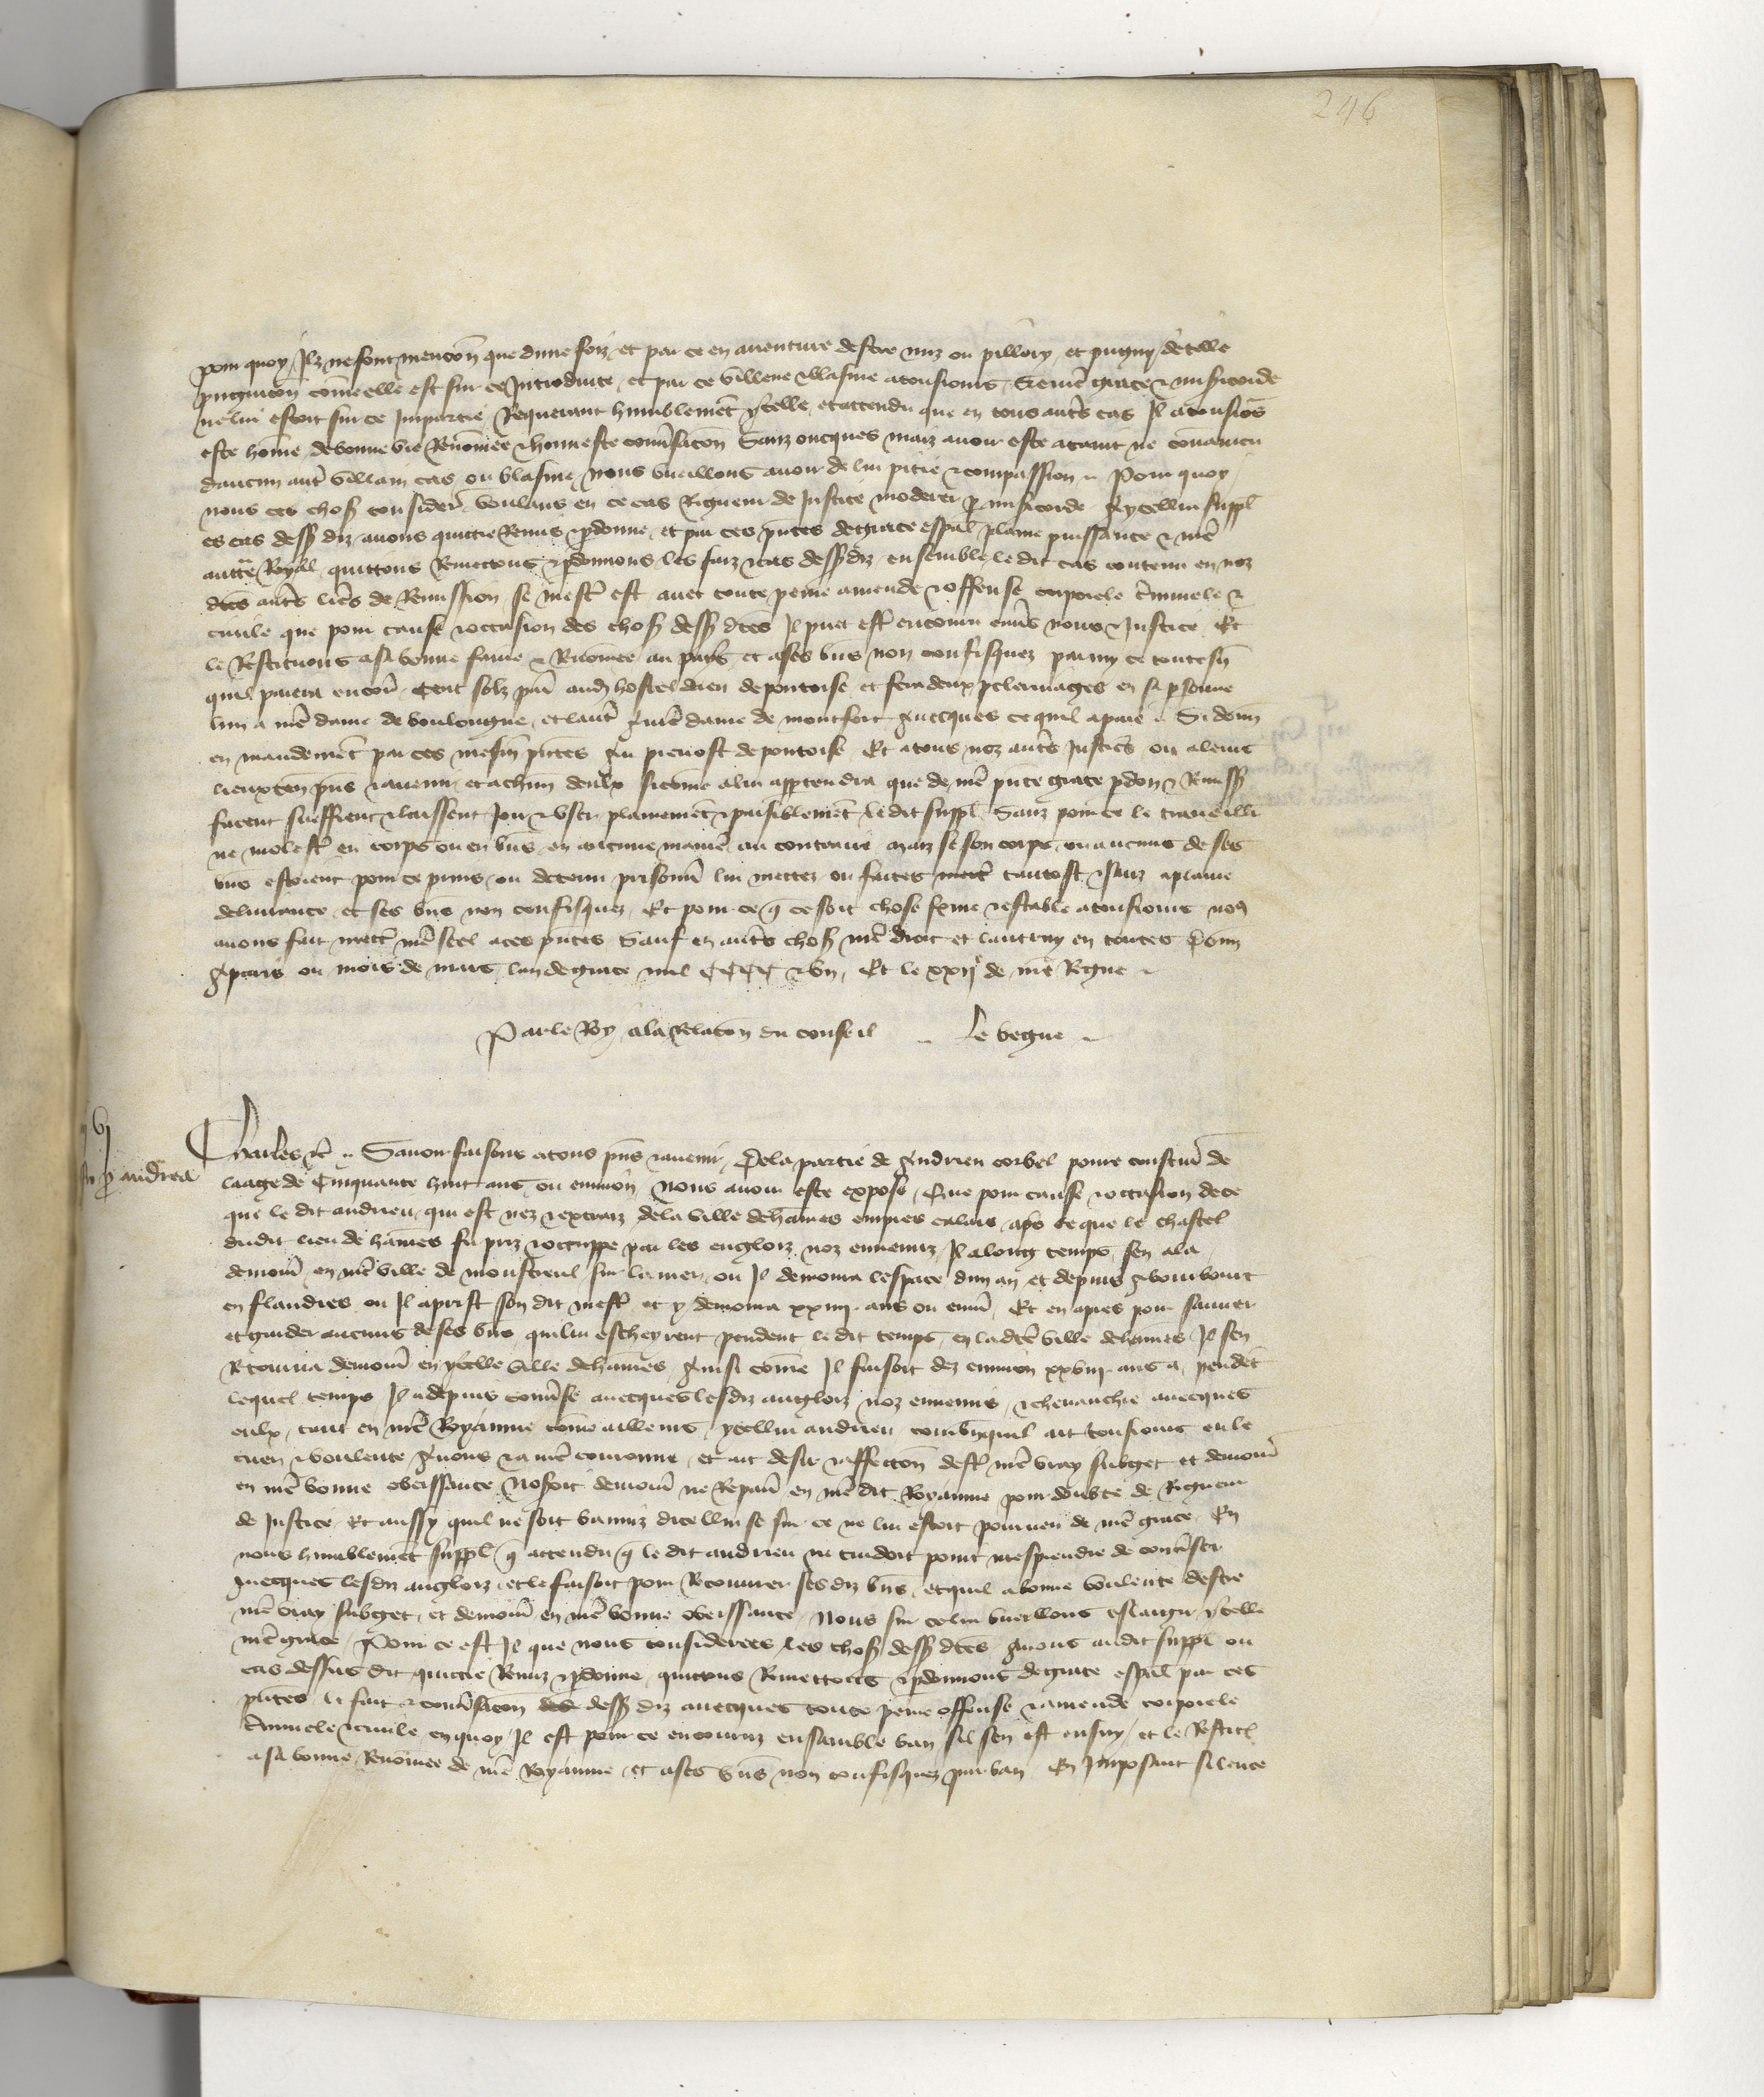 246
pour quoy Ilz ne font mencon que dune foiz et par ce en auenture destre mis ou pillory et pugny de telle
pugnicon come elle est sur ce Introduite et par ce villene & blasme a tousiours Se nre grace & misericorde
ne lui estoit sur ce Impartie Requerant humblemet ycelle et attendu que en tous autres cas Il a tousiors
este home de bonne vie Renomee & honneste conuersacon Sanz oncques mais auoir este ataint ne conuaincu
daucun autre villain cas ou blasme nous vueillons auoir de lui pitie & compassion Pour quoy
nous ces choses consideres voulans en ce cas Rigueur de Justice moderer par misericorde A ycellui suppl
es cas dessus diz auons quictie Remis & pardonne et par ces pntes de grace espal plaine puissance & nre
auctte Royal quittons Remectons & pardonnons les faiz & cas dessusdiz ensemble le dit cas contenu en noz
dces autres lres de Remission se mestr est auec toute peine amende & offense corporele criminele &
ciuile que pour cause & occasion des choses dessus dces Il puet estre encouru enuers nous & Justice Et
le Restituons a sa bonne fame & Renomee au pays et a ses biens non confisquez parmy ce toutesuoies
quil paiera encore Cent solz par aud hostel dieu de pontoise et fera deux pelerinages en sa personne
lun a nre dame de bouloigne et lautre a nre dame de montfort auecques ce quil a paie Si donn
en mandement par ces mesmes pntes Au preuost de pontoise Et a tous noz autres Justiciers ou a leurs
lieuxten pns & auenir et a chun deulx si come a lui appartendra que de nre pnte grace pardon & Remiss
facent sueffrent & laissent Joir & vser plainement & paisiblement le dit suppl Sanz pour ce le trauaillier
ne molester en corps ou en biens en aucune maniere au contraire mais se son corps ou aucuns de ses
biens estoient pour ce prins ou detenu prisonnier lui mettez ou faites mectre tantost & sanz a plaine
deliurance et ses biens non confisquez Et pour ce que ce soit chose ferme & estable a tousiours nous
auons fait mectre nre seel a ces pntes Sauf en autres choses nre droit et lautruy en toutes Donn
A paris ou mois de mars lan de grace mil CCCC & vn Et le xxij de nre Regne
Par le Roy a la Relacon du conseil Le begue
andrea
Charles &c Sauoir faisons a tous pns & auenir De la partie de Andrieu corbel poure cousturier de
laage de Cinquante huit ans ou enuiron nous auoir este expose Que pour cause & occasion de ce
que le dit andrieu qui est nez & extraiz de la ville de hames empres calais aps ce que le chastel
dudit lieu de hames fu priz & occuppe par les engloiz noz ennemiz Il a long temps sen ala
demourer en nre ville de monstreul sur la mer ou Il demoura lespace dun an et depuis
en flandres ou Il aprist son dit mestier et y demoura xxiiij ans ou enuiron Et en apres pour sauuer
et garder aucuns de ses biens qui lui escheyrent pendent le dit temps en ladce ville de hames Il sen
Retourna demourer en ycelle ville de hames Ainsi come Il faisoit dez enuiron xxviij ans a pendet
lequel temps Il a depuis conuerse auecques lesdiz angloiz noz ennemis & cheuauchie auecques
eulx tant en nre Royaume come ailleurs ycellui andrieu combien quil ait tousiours eu le
cuer & voulente A nous & a nre couronne et ait desir & affeccon destre nre vray subget et demourer
en nre bonne obeissance Nosoit demourer ne Reparer en nre dit Royaume pour doubte de Rigueur
de Justice Et aussy quil ne soit banniz dicellui se sur ce ne lui estoit pourueu de nre grace En
nous humblement suppl que attendu que le dit andrieu ne cuidoit point mesprendre de conuerser
Auecques lesdiz angloiz et le faisoit pour Recouurer ses diz biens et quil a bonne voulente destre
nre vray subget et demourer en nre bonne obeissance Nous sur ce lui vueillons eslargir ycelle
nre grace Pour ce est Il que nous considerees les choses dessus dces Auons audit suppl ou
cas dessus dit quictie Remiz & pardonne quictons Remettons & pardonnons de grace espal par ces
pntes le fait & conuersacon dessus diz auecques toute peine offense & amende corporele
Criminele & ciuile en quoy Il est pour ce encouruz ensamble ban sil sen est ensuy et le Restit
a sa bonne Renomee de nre Royaume et a ses biens non confisquez par ban En Imposant silence